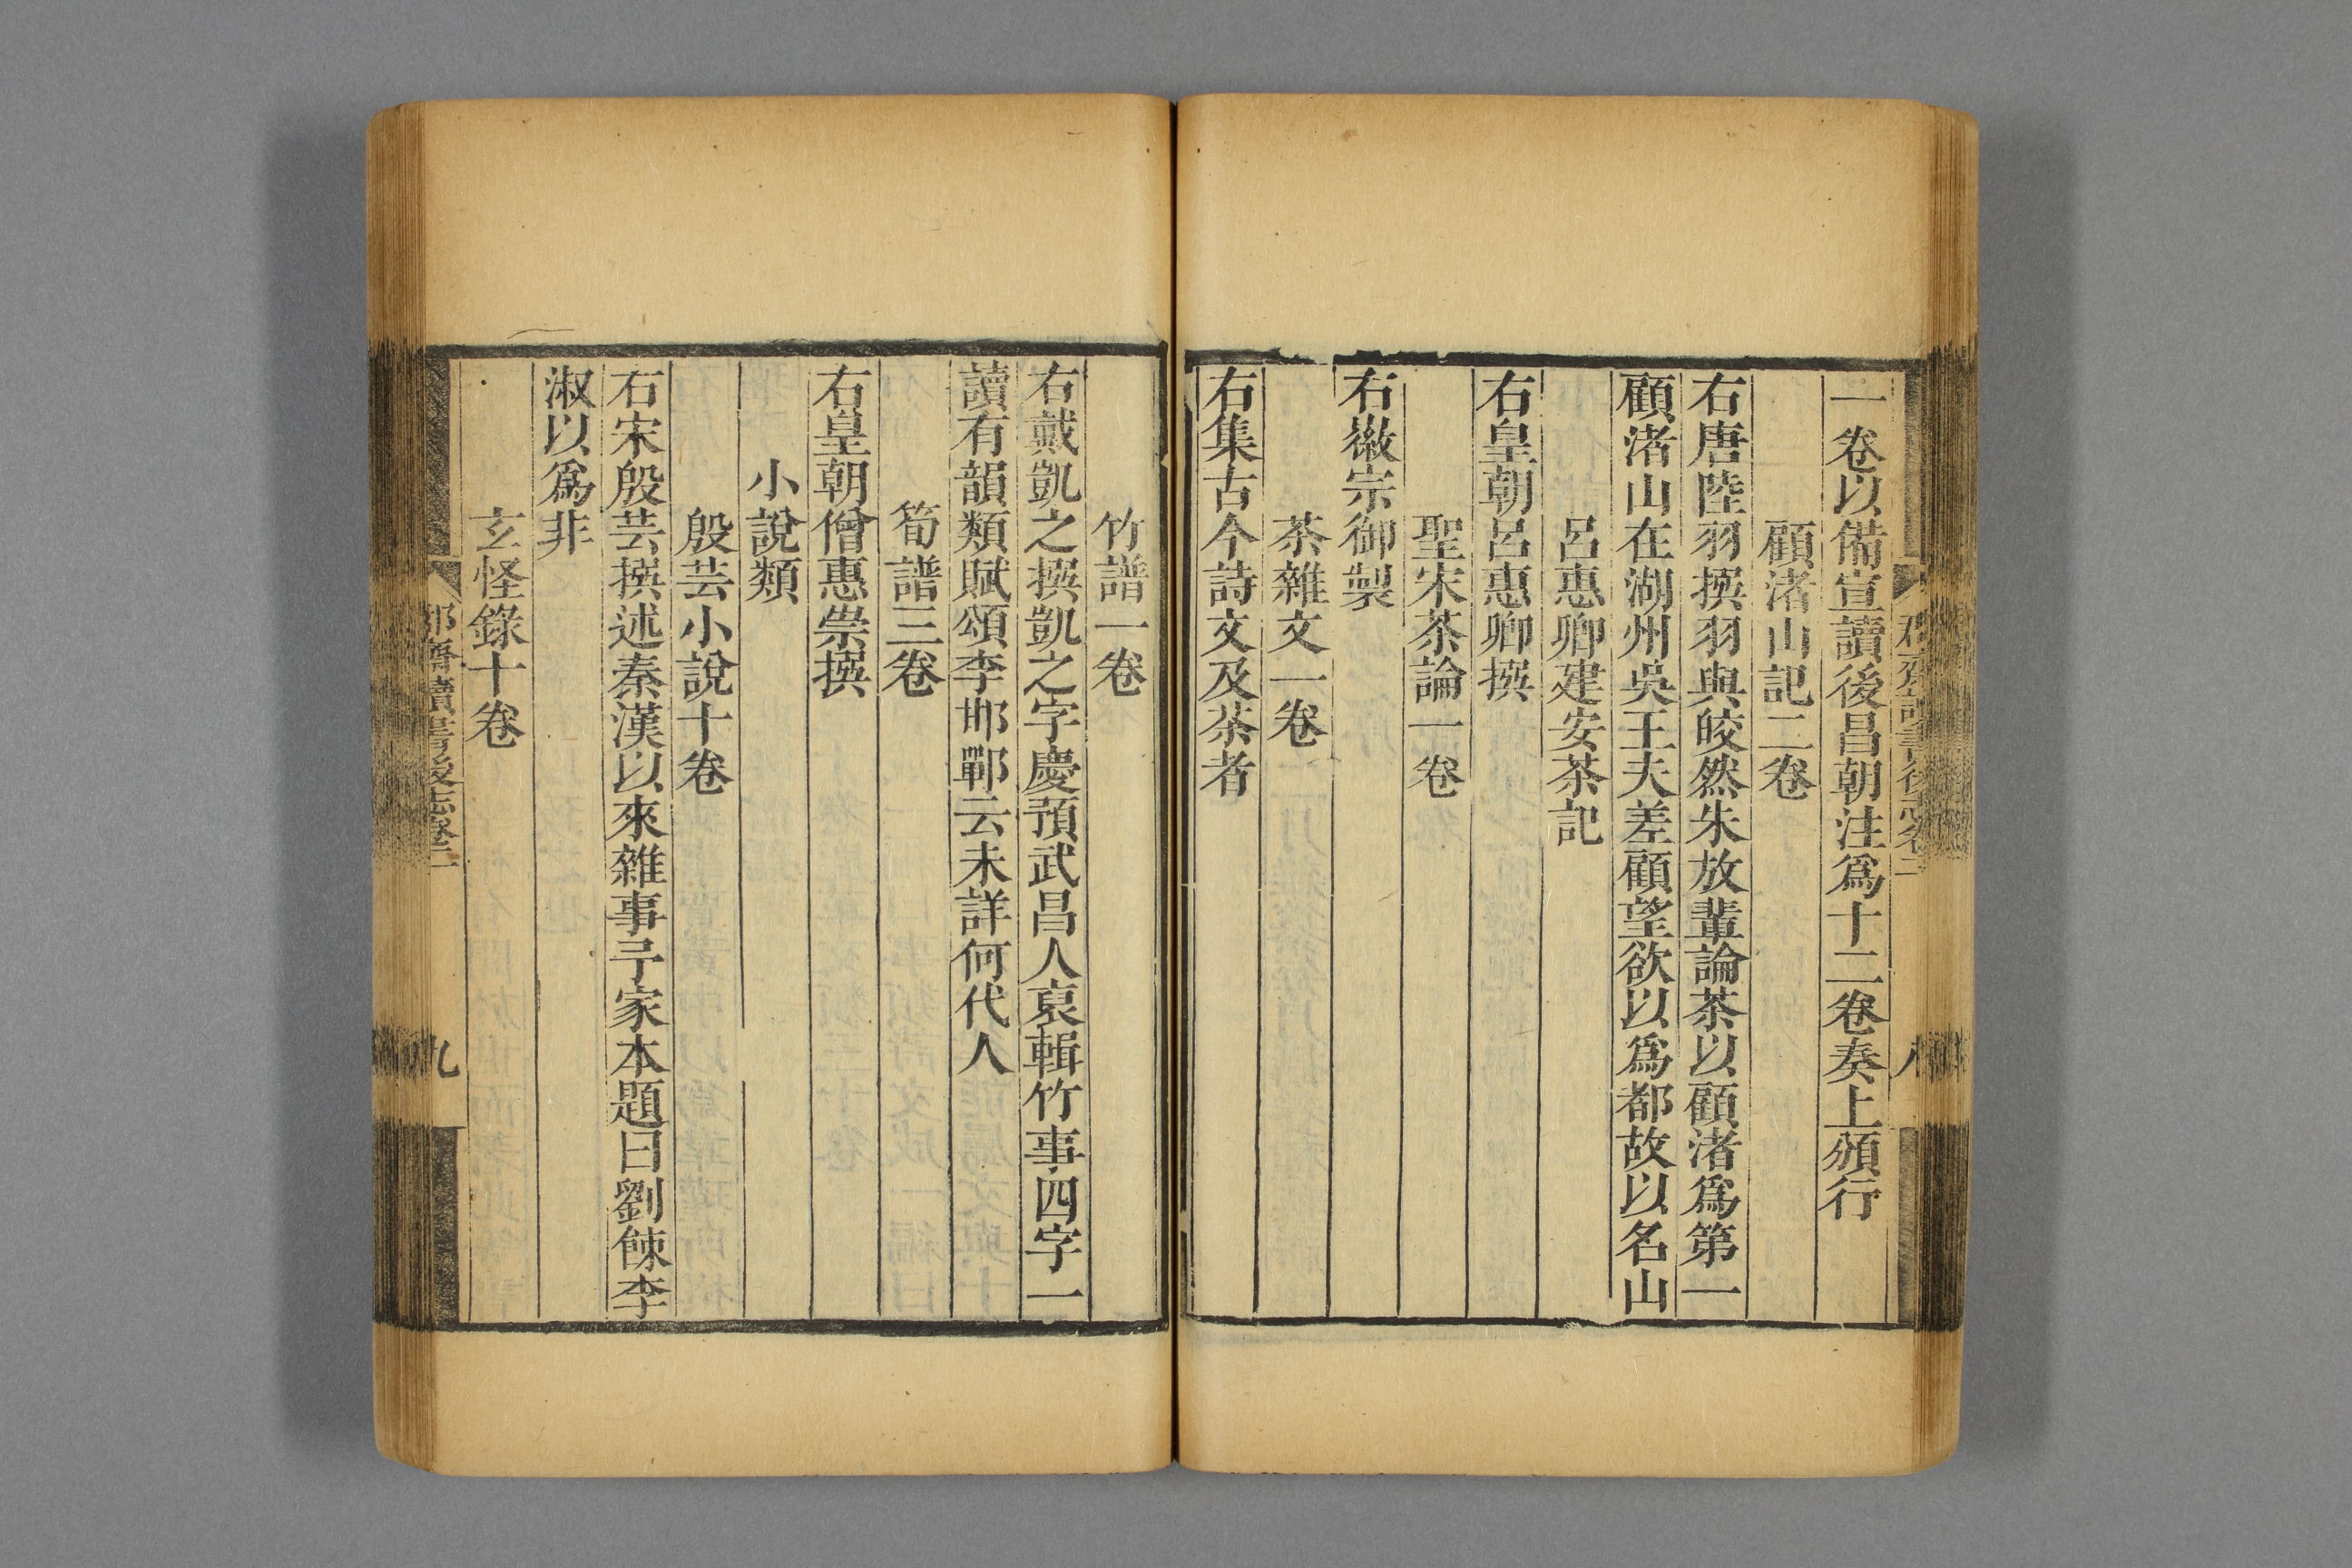 一卷以備宣讀後昌朝注爲十二卷奏上頒行
顧渚山記二卷
右唐陸羽撰羽與皎然朱放輩論茶以顧渚爲第一
顧渚山在湖州吳王夫差顧望欲以爲都故以名山
呂惠卿建安茶記
右皇朝呂惠卿撰
聖宋茶論一卷
右徽宗御製
茶雜文一卷
右集古今詩文及茶者
竹譜一卷
右戴凱之撰凱之字慶預武昌人裒輯竹事四字一
讀有韻類賦頌李邯鄲云未詳何代人
筍譜三卷
右皇朝僧惠崇撰
小說類
殷芸小說十卷
右宋殷芸撰述秦漢以來雜事予家本題曰劉餗李
淑以爲非
玄怪錄十卷
郡齋讀書後志卷二
九